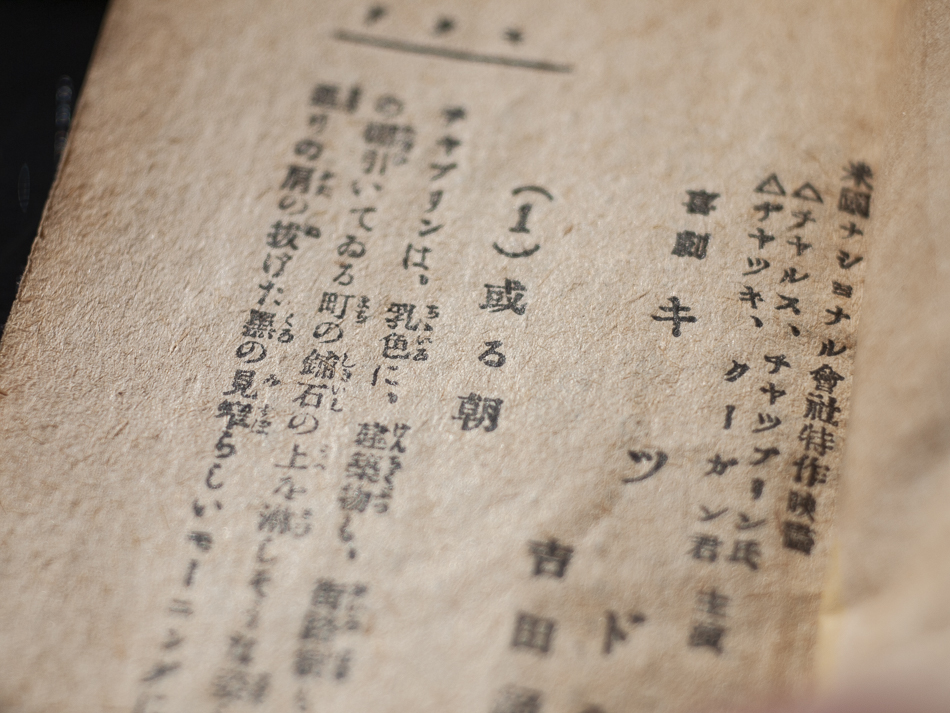 米國ナショナル會社特作映畫
△チャルス、チャップリン氏
△チャツキ、クーガン君 主演
喜劇 キツド
吉田
(1)或る朝
チャプリンは、乳色に、建築物も、
の棚引いてゐる町の鋪石の上を淋しそうな姿
りの肩の拔けた墨の見窄らしいモーニング